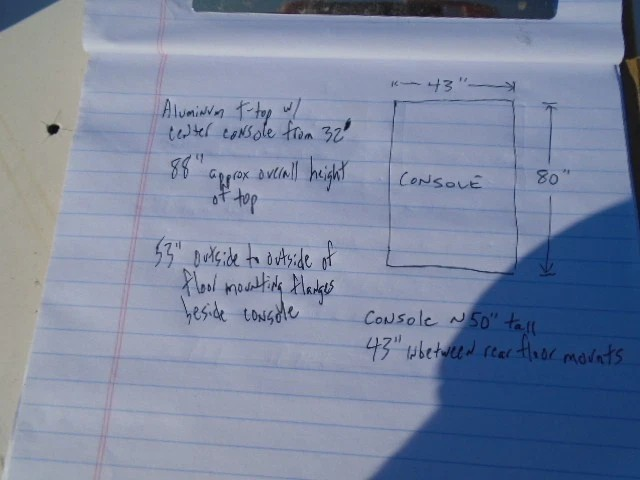 Aluminum t-top w/
center console from 32'
88" approx overall height
of top
53" outside to outside of
floor mounting flanges
beside console
43"
CONSOLE
80"
Console ~50" tall
43" inbetween rear floor mounts